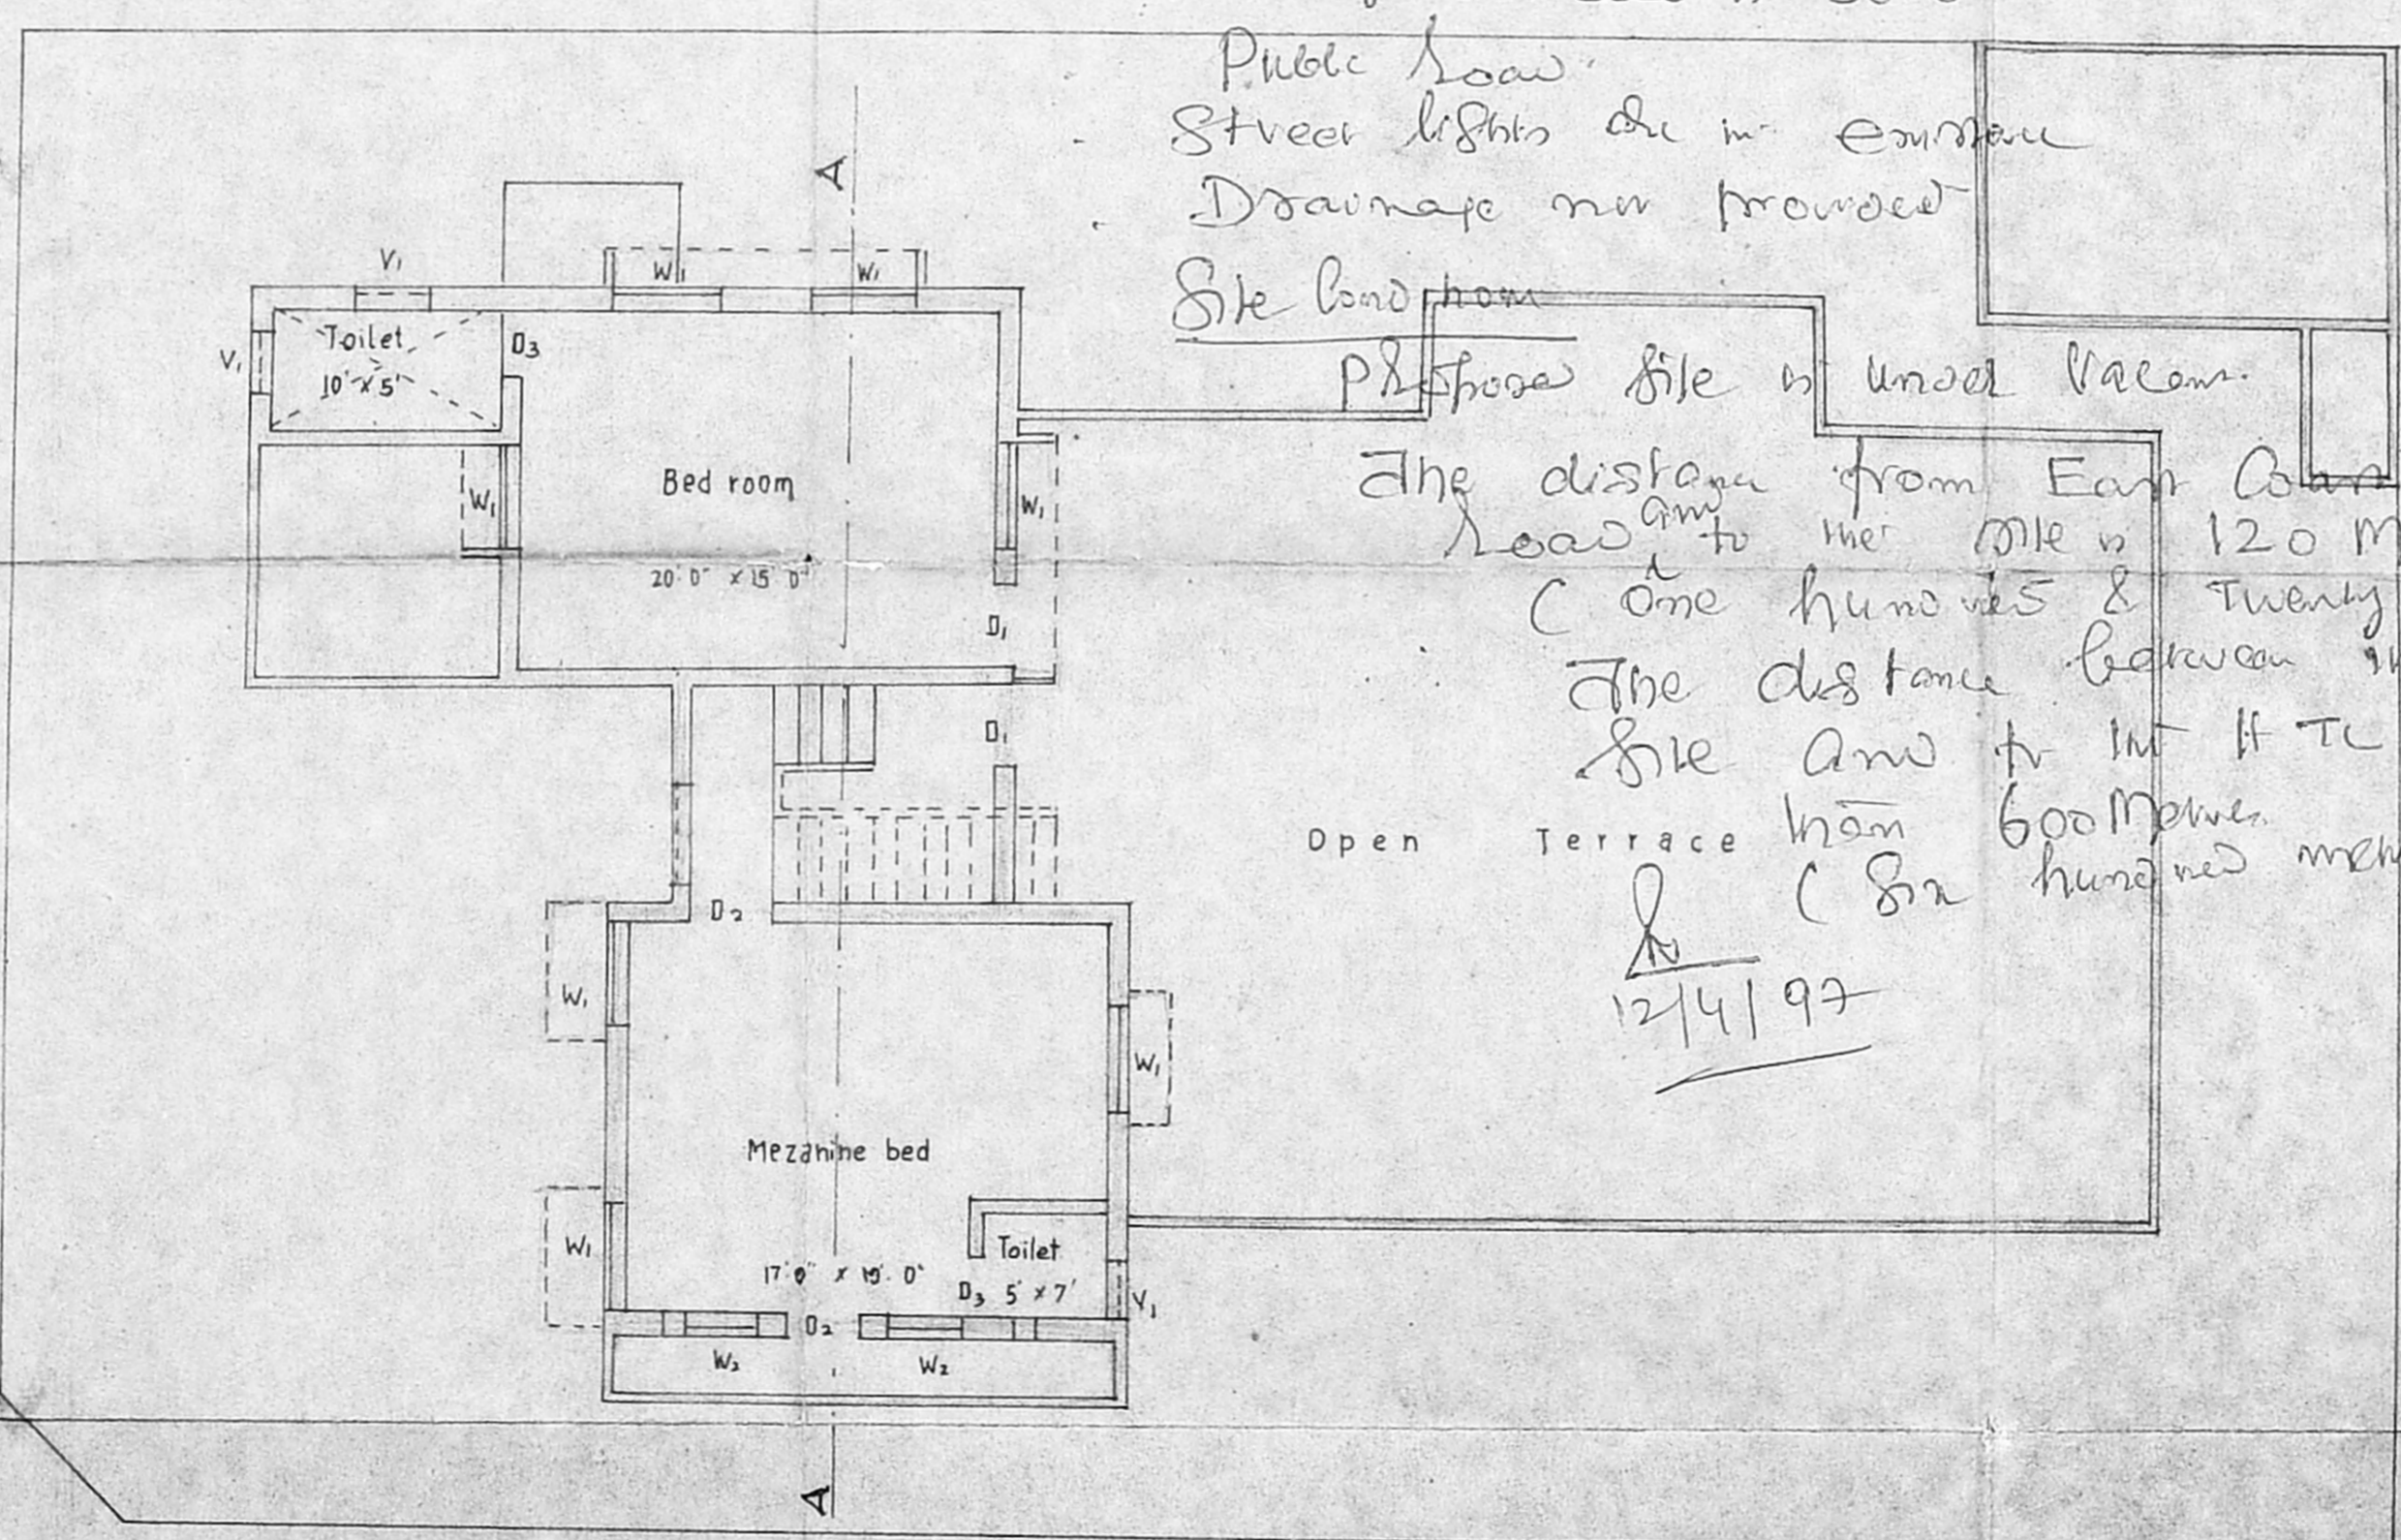 Public Road
Street lights are in existence
Drainage not provided
Site Condition
Propose site is under Vacant.
The distance from East Coast
Road and to the site is 120 M
( One hundred & Twenty
The distance between
Site and to HT
than 600 Metres
( Six hundred
12/4/97
A
V1
W1
W1
Toilet
10' x 5'
D3
V1
Bed room
20'0" x 15'0"
W1
W1
D1
D1
Open Terrace
D2
W1
W1
Mezanine bed
17'0" x 19'.0"
W1
Toilet
D3 5' x 7'
V1
D2
W2
W2
A